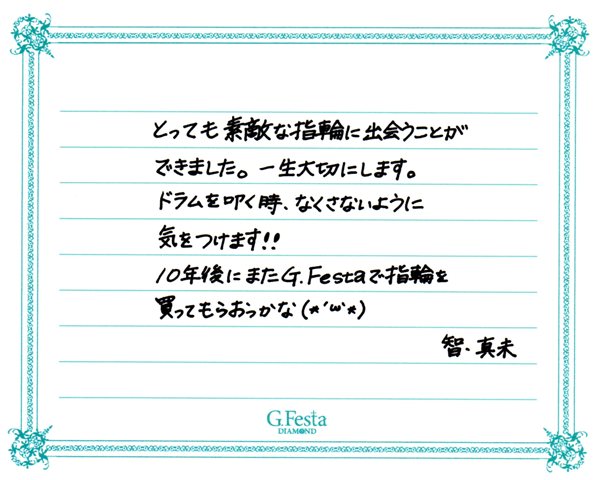 とっても素敵な指輪に出会うことが
できました。一生大切にします。
ドラムを叩く時、なくさないように
気をつけます!!
10年後にまたG.Festaで指輪を
買ってもらおっかな(*´ω`*)
智・真未
G.Festa
DIAMOND